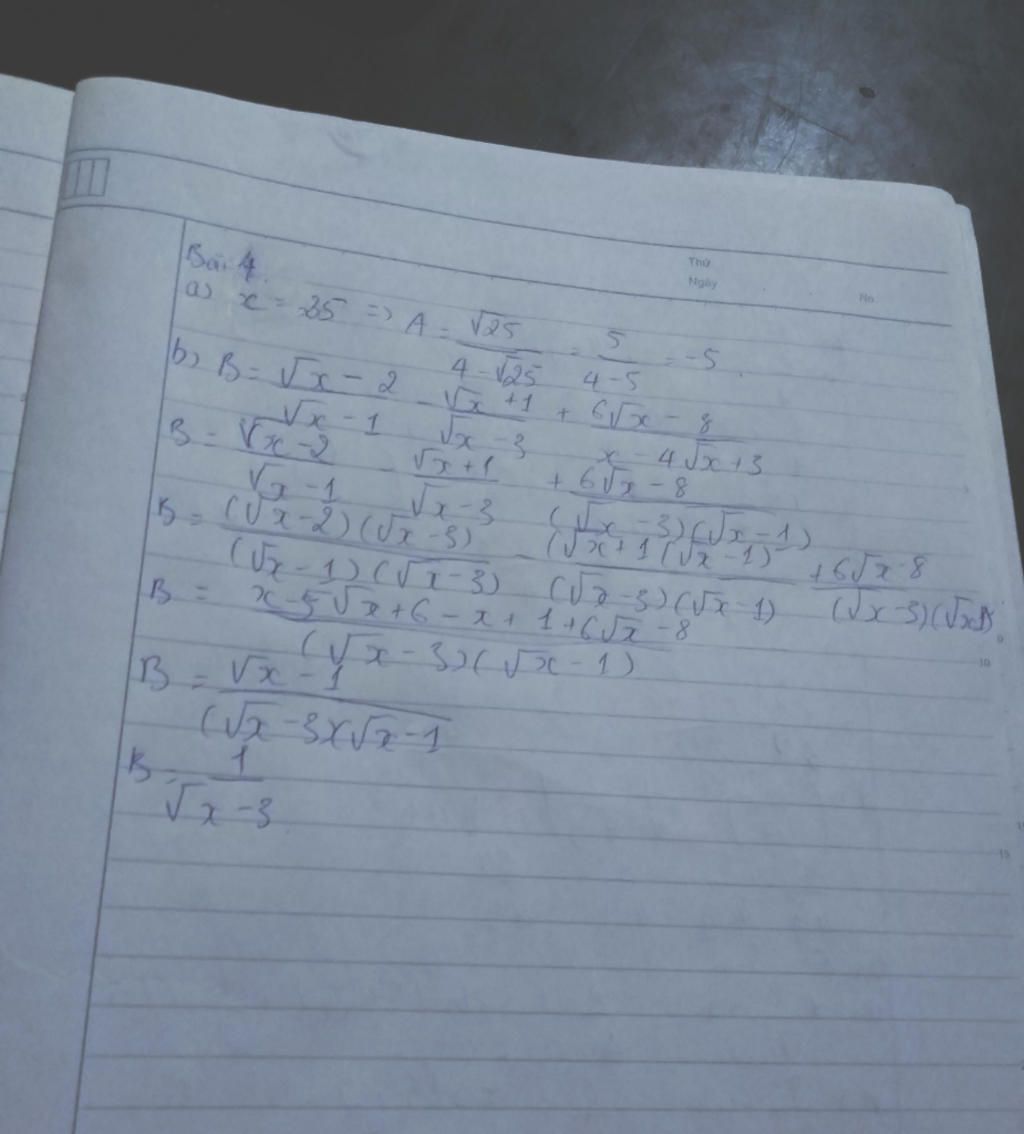 Thứ
Ngày
No
Bài 4
a) x = 25 => A = √25 / (4 - √25) = 5 / (4 - 5) = -5.
b) B = (√x - 2) / (√x - 1) - (√x + 1) / (√x - 3) + (6√x - 8) / (x - 4√x + 3)
B = (√x - 2) / (√x - 1) - (√x + 1) / (√x - 3) + (6√x - 8) / ((√x - 3)(√x - 1))
B = (√x - 2)(√x - 3) / (√x - 1)(√x - 3) - (√x + 1(√x - 1) / (√x - 3)(√x - 1) + 6√x - 8 / (√x - 3)(√x
B = x - 5√x + 6 - x + 1 + 6√x - 8 / (√x - 3)(√x - 1)
B = √x - 1 / (√x - 3)(√x - 1
B = 1 / √x - 3
10
15